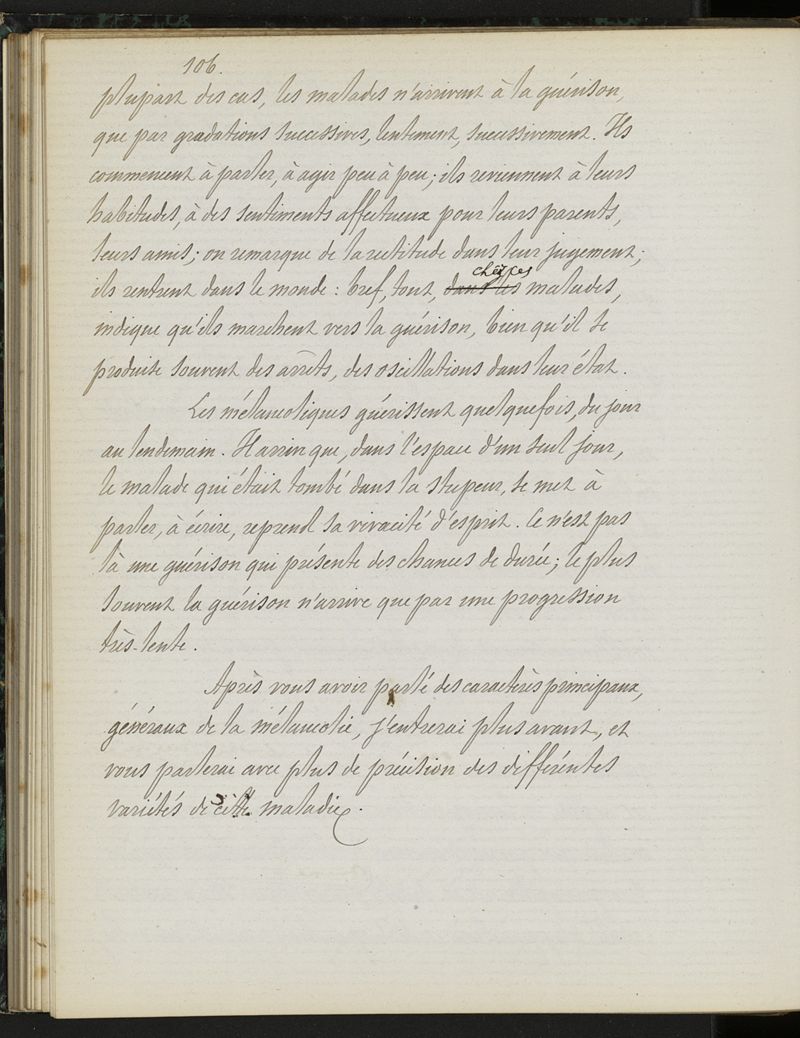 106.
plupart des cas, les malades n'arrivent à la guérison,
que par gradations successives, lentement, successivement. Ils
commencent à parler, à agir peu à peu ; ils reviennent à leurs
habitudes, à des sentiments affectueux pour leurs parents,
leurs amis ; on remarque de la rectitude dans leur jugement ;
ils rentrent dans le monde : bref, tout, dans les chez ces malades,
indique qu'ils marchent vers la guérison, bien qu'il se
produise souvent des arrêts, des oscillations dans leur état.
Les mélancoliques guérissent quelquefois, du jour
au lendemain. Il arrive que, dans l'espace d'un seul jour,
le malade qui était tombé dans la stupeur, se met à
parler, à écrire, reprend sa vivacité d'esprit. Ce n'est pas
là une guérison qui présente des chances de durée ; le plus
souvent la guérison n'arrive que par une progression
très-lente.
Après vous avoir parlé des caractères principaux,
généraux de la mélancolie, j'entrerai plus avant, et
vous parlerai avec plus de précision des différentes
variétés de cette maladie.